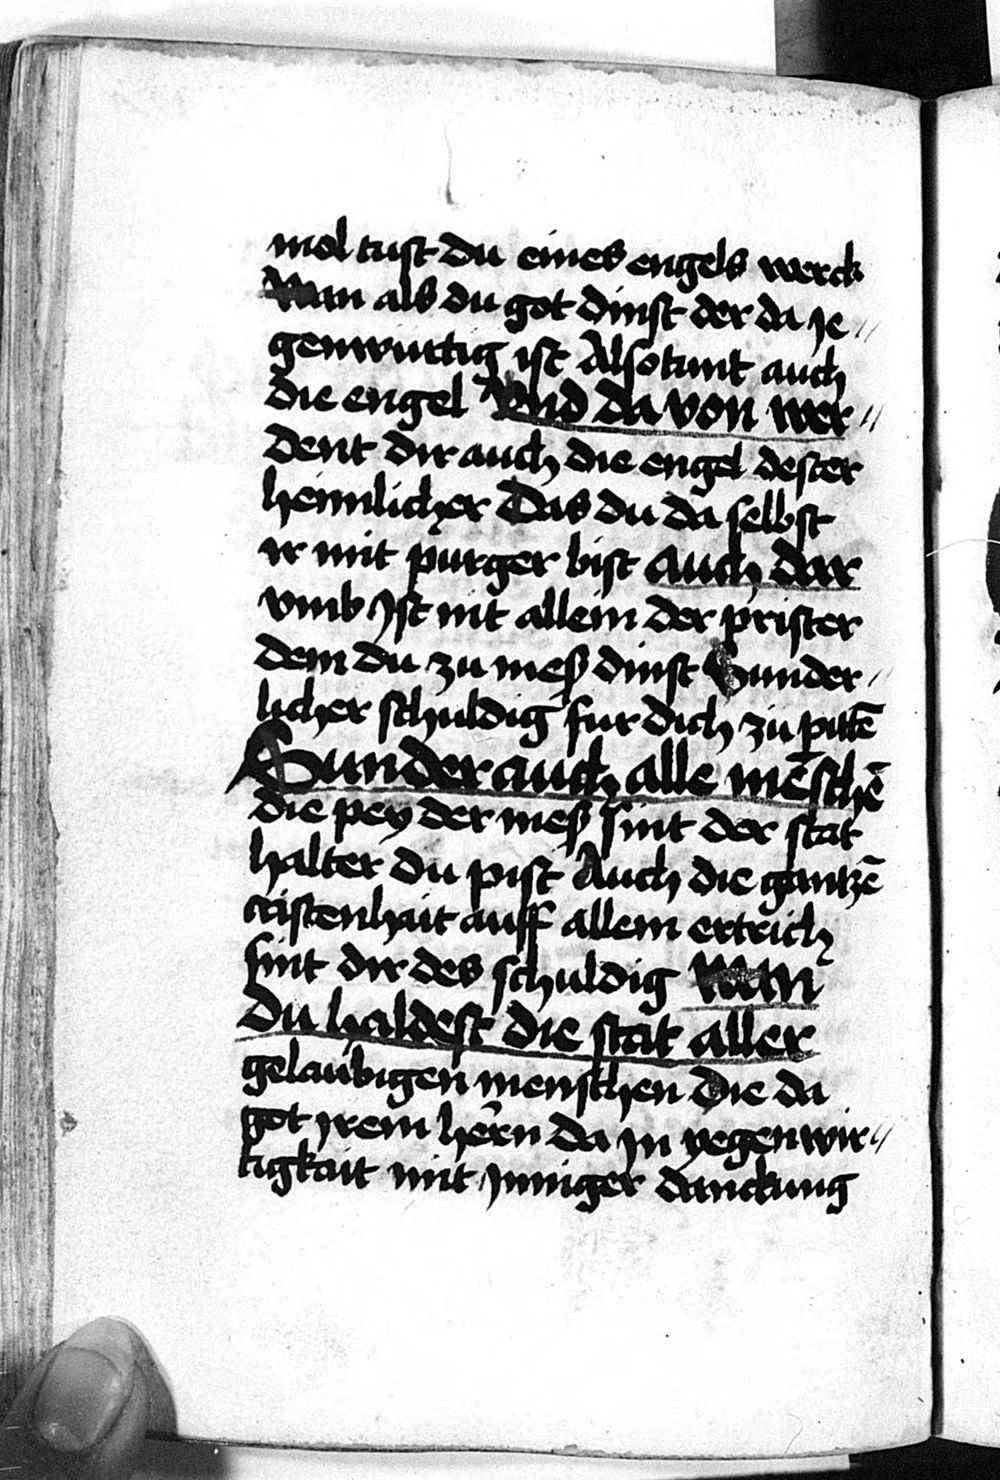 mol tust du eines engels werck
Wan als du got dinst der da ie //
genwurtig ist Also tunt auch
die engel Und da von wer //
dent dir auch die engel dester
heimlicher Das du da selbst
ir mit purger bist Auch dar
vmb Jst nit allein der prister
dem du zu meß dinst Sunder //
licher schuldig fur dich zu pittē
Sunder auch alle mēschē
die pey der meß sint der stat
halter du pist Auch die gantzē
cristenhait auff allem ertrich
sint dir des schuldig Wan
Du haldest die stat aller
gelaubigen menschen Die da
got irem herrn da jn yegenwir //
tigkait mit Jnniger danckung